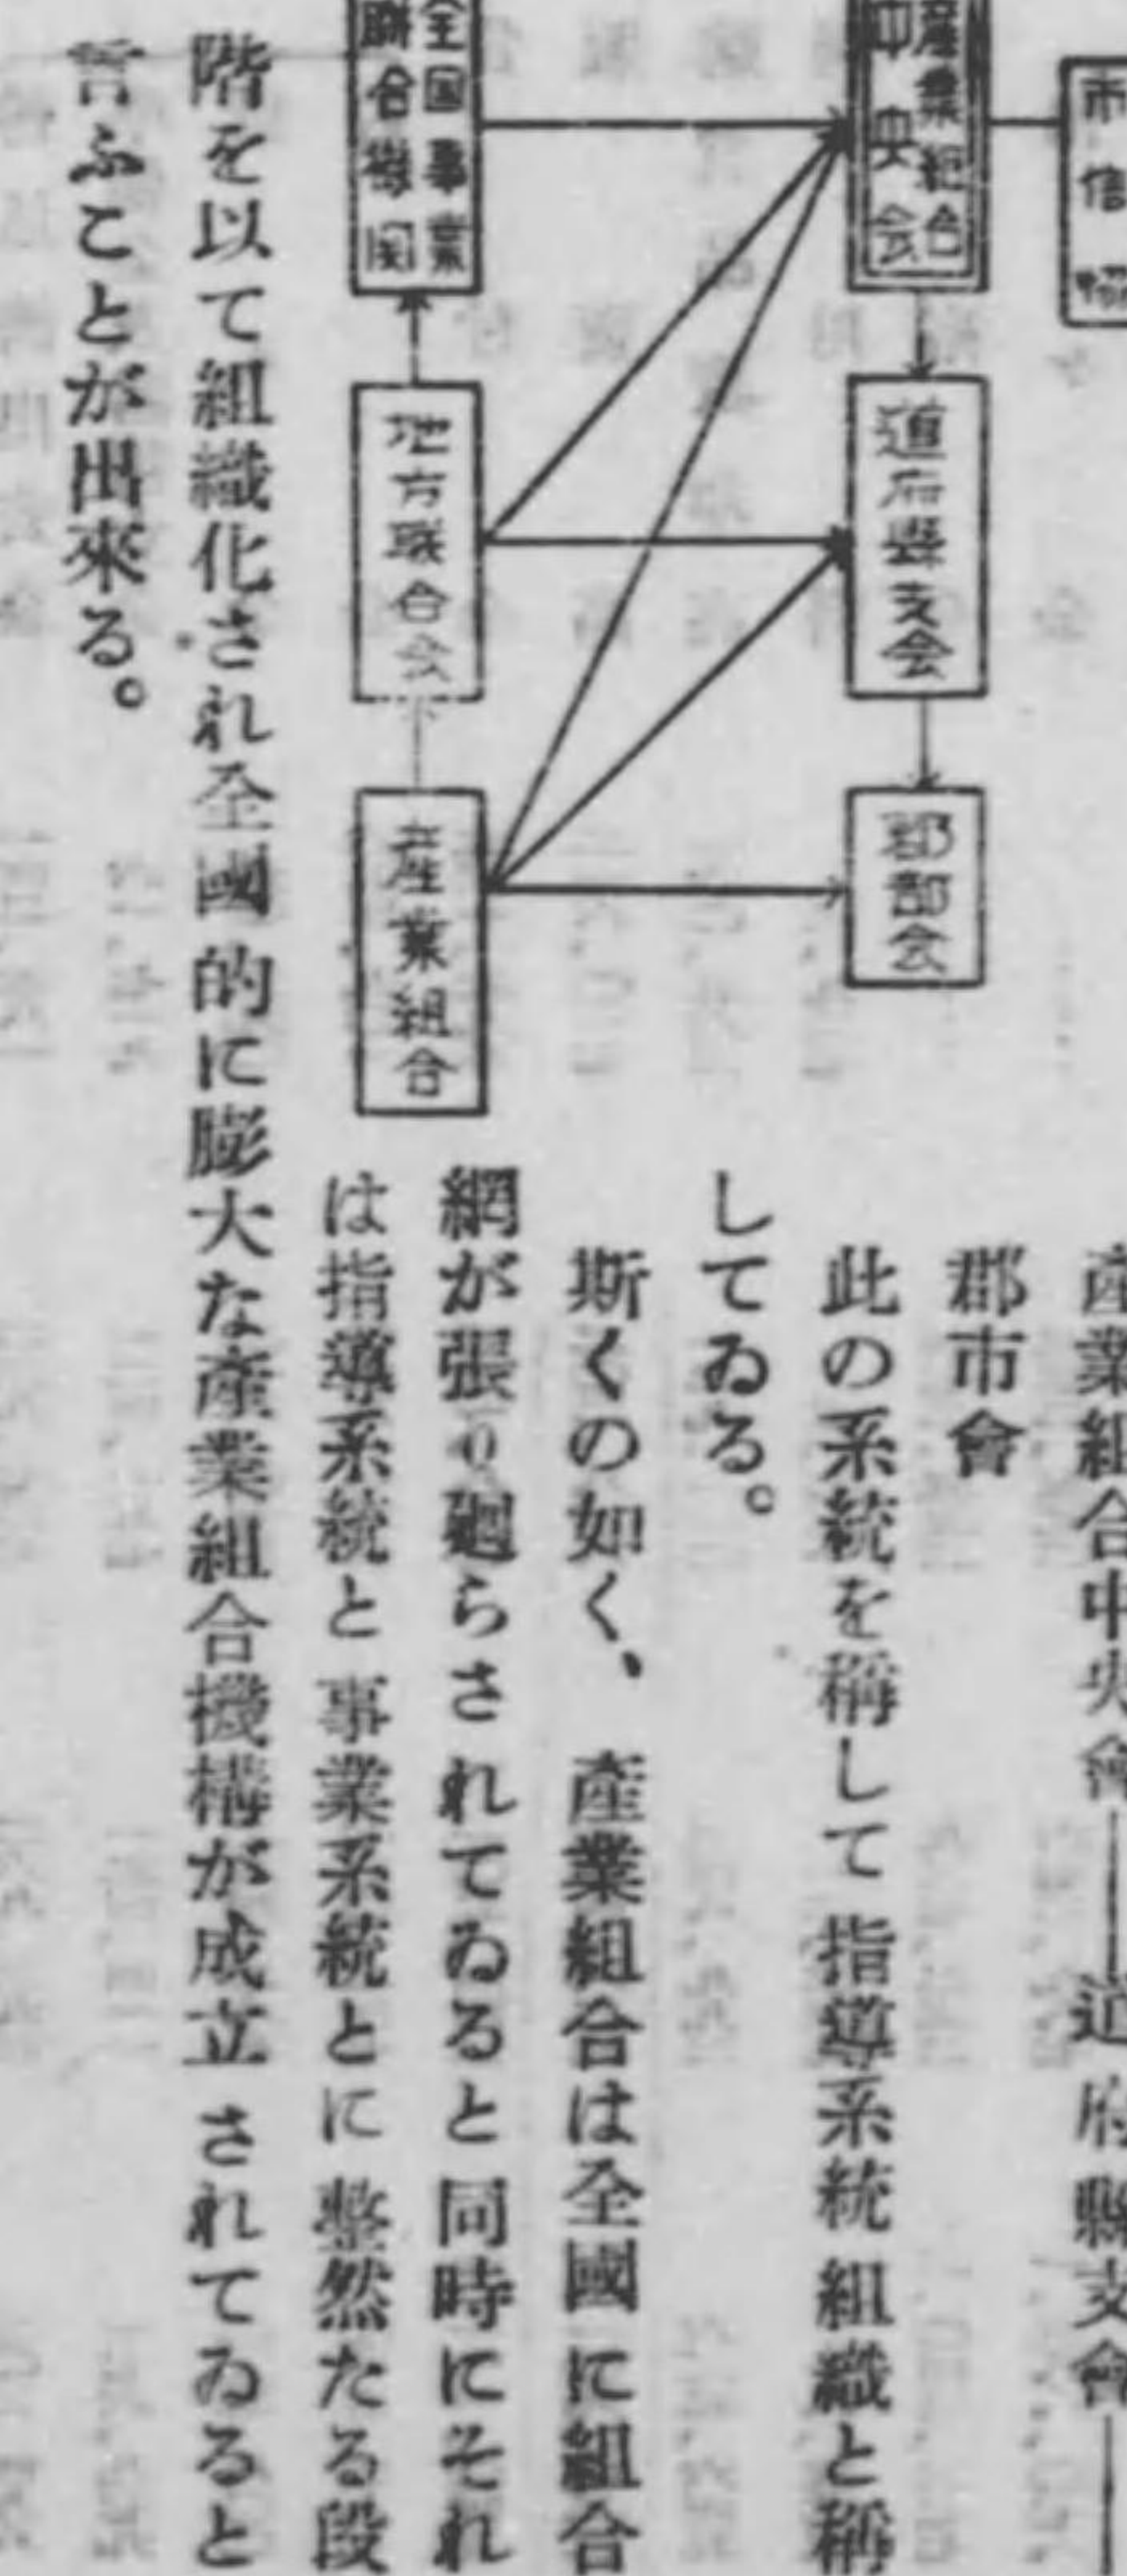 市信
産業組合
中央会
道府縣支会
郡部会
全国事業
聯合機関
地方联合会
産業組合
産業組合中央會——道府縣支會——
郡市會
此の系統を稱して指導系統組織と稱
してゐる。
斯くの如く、產業組合は全國に組合
網が張り廻らされてゐると同時にそれ
は指導系統と事業系統とに整然たる段
階を以て組織化され全國的に膨大な產業組合機構が成立されてゐると
言ふことが出來る。